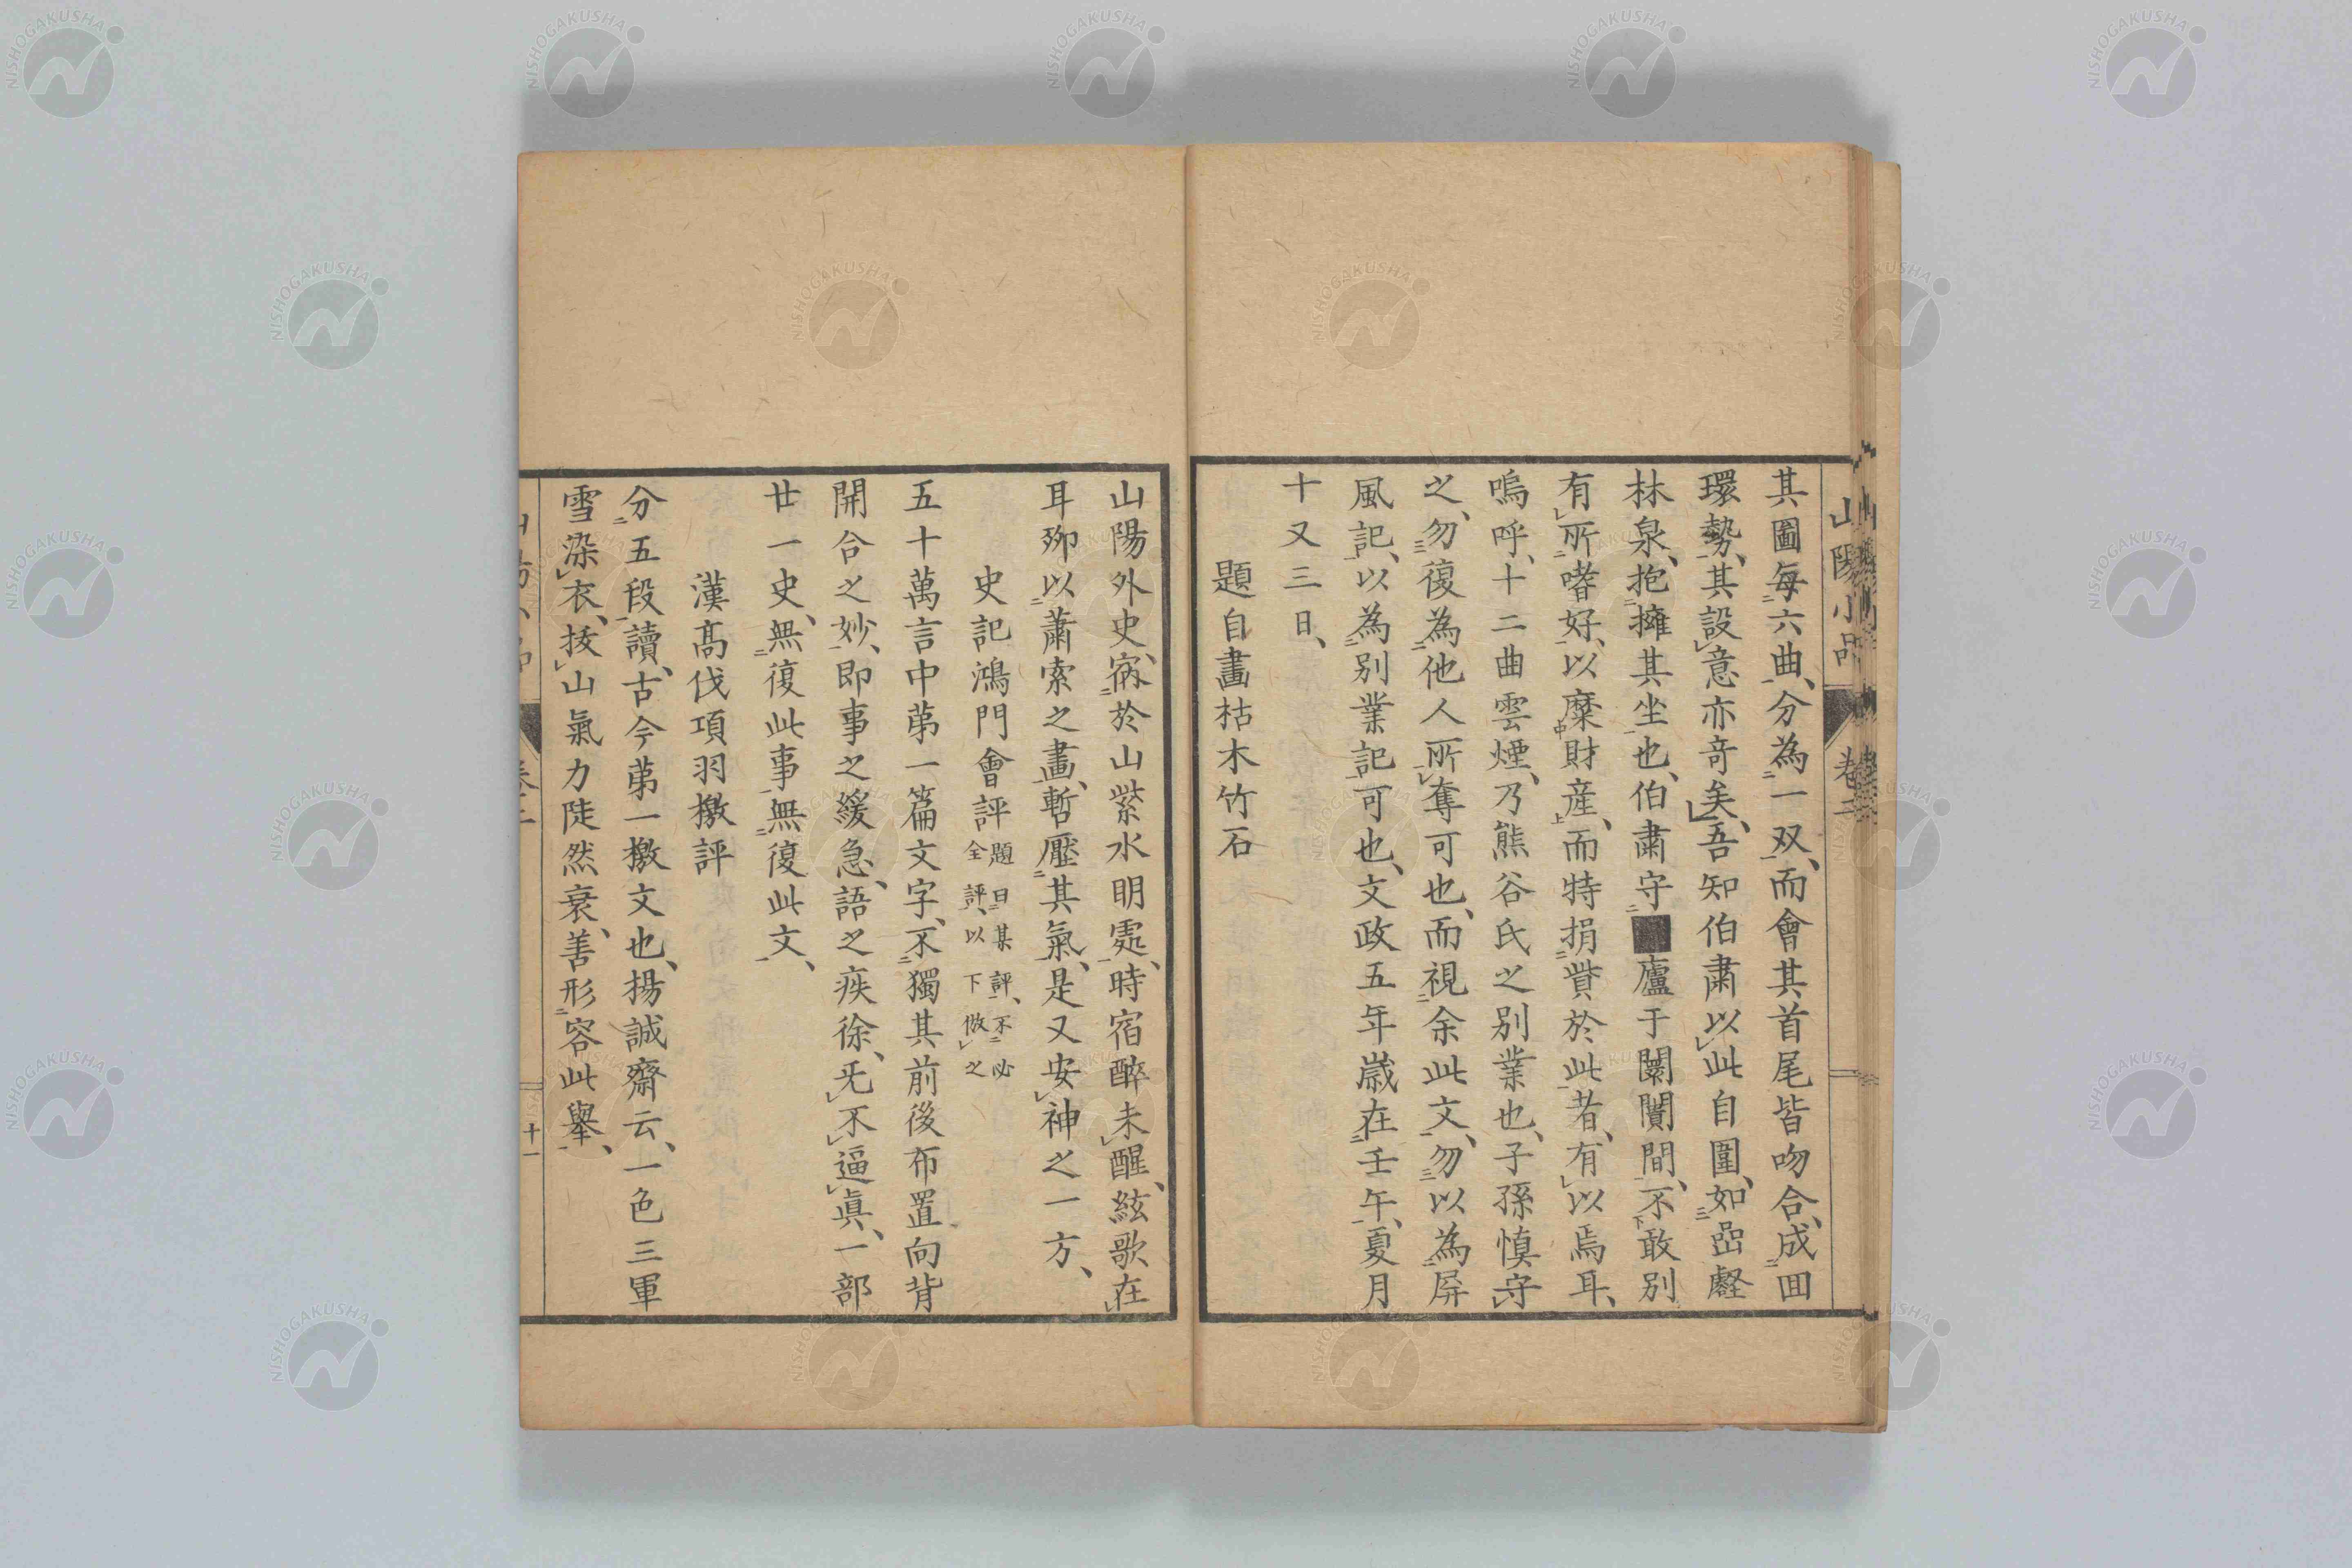 其圖每六曲、分為一双、而會其首尾皆吻合、成回
環勢、其設意亦奇矣、吾知伯肅以此自圍、如嵒壑
林泉、抱擁其坐也、伯肅守■廬于闤闠間、不敢別
有所嗜好、以糜財産、而特捐貲於此者、有以焉耳、
嗚呼、十二曲雲煙、乃熊谷氏之別業也、子孫慎守
之、勿復為他人所奪可也、而視余此文、勿以為屏
風記、以為別業記可也、文政五年歲在壬午、夏月
十又三日、
題自畫枯木竹石
山陽外史、病於山紫水明處、時宿醉未醒、絃歌在
耳、聊以蕭索之畫、暫壓其氣、是又安神之一方、
史記鴻門會評 題曰某評、不必全評、以下倣之
五十萬言中第一篇文字、不獨其前後布置向背
開合之妙、即事之緩急、語之疾徐、无不逼真、一部
廿一史、無復此事、無復此文、
漢高伐項羽檄評
分五段讀、古今第一檄文也、揚誠齋云、一色三軍
雪染衣、拔山氣力陡然衰、善形容此舉、
山陽小品
卷二
十一
NISHOGAKUSHA